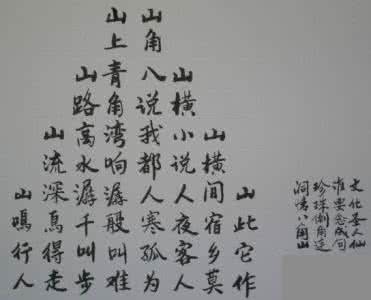 文化圣人仙
谁要念成句
珍珠倒角
洞八角山
山此它作
山横间宿乡莫
山横小说人夜客人
山角八说我都人寒孤为
山上青角湾响潺般叫难
山路高水潺千叫步
山流深鸟得走
山鸣行人